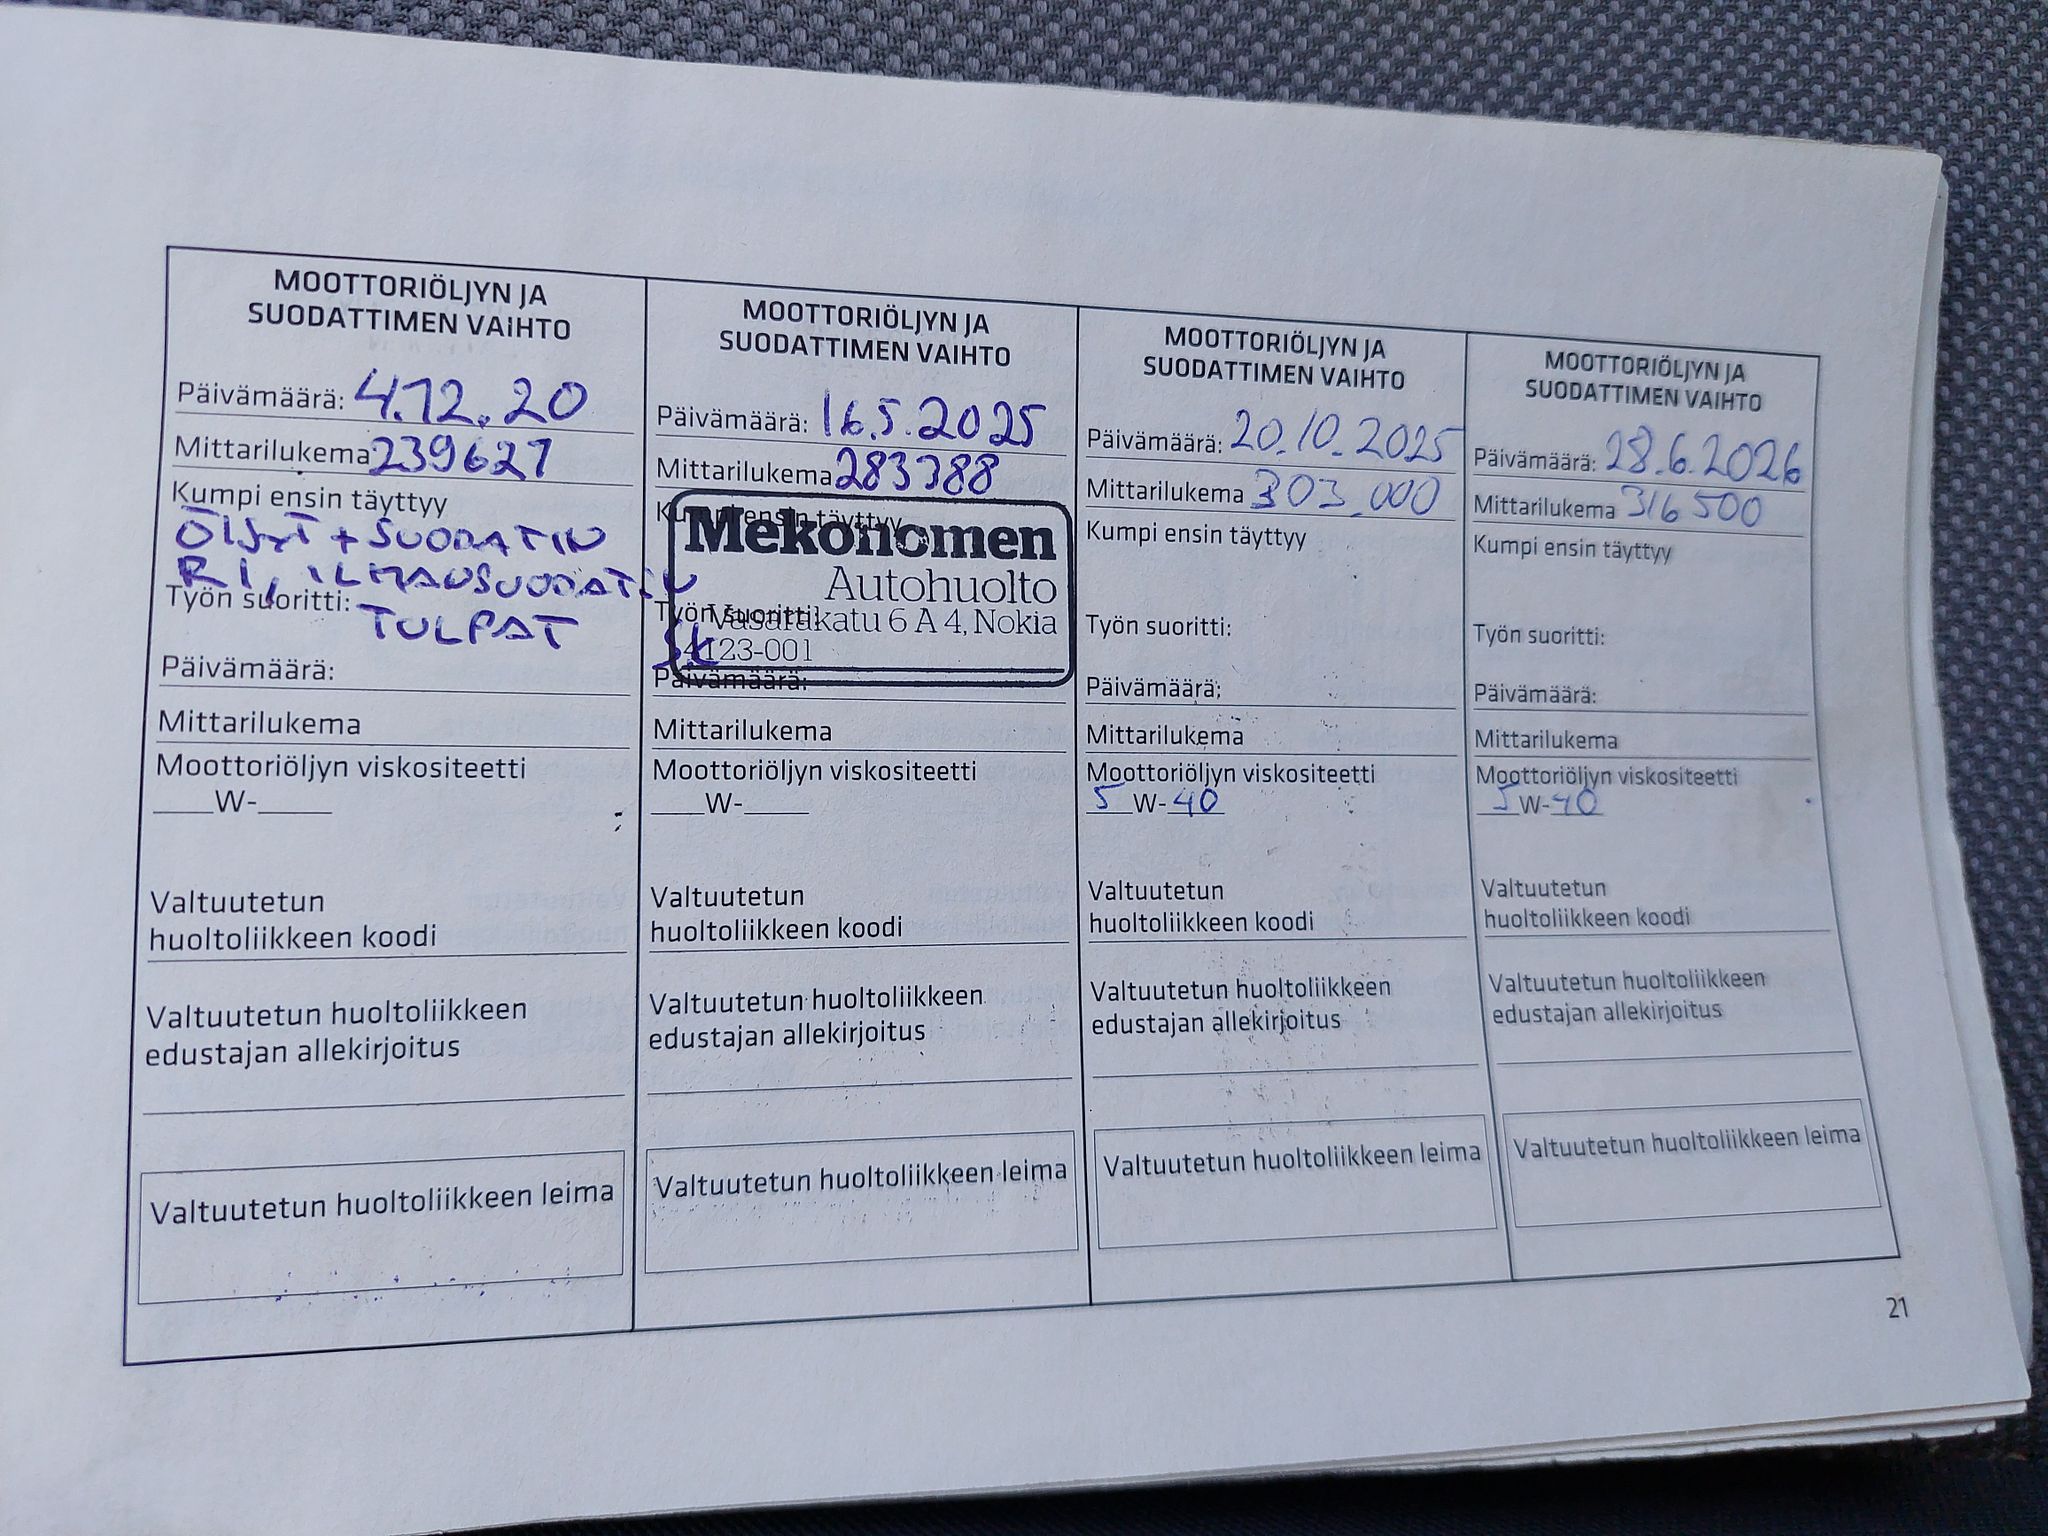 MOOTTORIÖLJYN JA
SUODATTIMEN VAIHTO
Päivämäärä: 4.12.20
Mittarilukema 239627
Kumpi ensin täyttyy
ÖljyT + SUODATIN
RI, ILMANSUODATIN
Työn suoritti: TULPAT
Päivämäärä:
Mittarilukema
Moottoriöljyn viskositeetti
___W-____
Valtuutetun
huoltoliikkeen koodi
Valtuutetun huoltoliikkeen
edustajan allekirjoitus
Valtuutetun huoltoliikkeen leima
MOOTTORIÖLJYN JA
SUODATTIMEN VAIHTO
Päivämäärä: 16.5.2025
Mittarilukema 283388
Kumpi ensin täyttyy
Mekonomen
Autohuolto
Työn suoritti:
Vasarakatu 6 A 4, Nokia
4123-001
Päivämäärä:
Mittarilukema
Moottoriöljyn viskositeetti
___W-____
Valtuutetun
huoltoliikkeen koodi
Valtuutetun huoltoliikkeen
edustajan allekirjoitus
Valtuutetun huoltoliikkeen leima
MOOTTORIÖLJYN JA
SUODATTIMEN VAIHTO
Päivämäärä: 20.10.2025
Mittarilukema 303.000
Kumpi ensin täyttyy
Työn suoritti:
Päivämäärä:
Mittarilukema
Moottoriöljyn viskositeetti
5 W-40
Valtuutetun
huoltoliikkeen koodi
Valtuutetun huoltoliikkeen
edustajan allekirjoitus
Valtuutetun huoltoliikkeen leima
MOOTTORIÖLJYN JA
SUODATTIMEN VAIHTO
Päivämäärä: 28.6.2026
Mittarilukema 316 500
Kumpi ensin täyttyy
Työn suoritti:
Päivämäärä:
Mittarilukema
Moottoriöljyn viskositeetti
5 W-40
Valtuutetun
huoltoliikkeen koodi
Valtuutetun huoltoliikkeen
edustajan allekirjoitus
Valtuutetun huoltoliikkeen leima
21